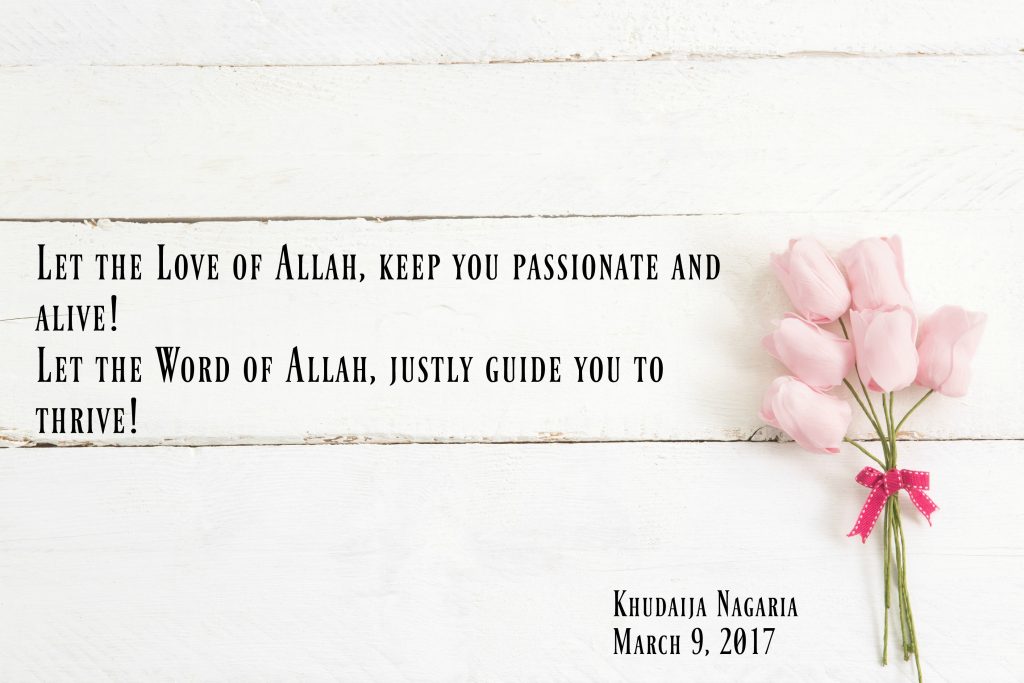 Let the Love of Allah, keep you passionate and
alive!
Let the Word of Allah, justly guide you to
thrive!
Khudaija Nagaria
March 9, 2017